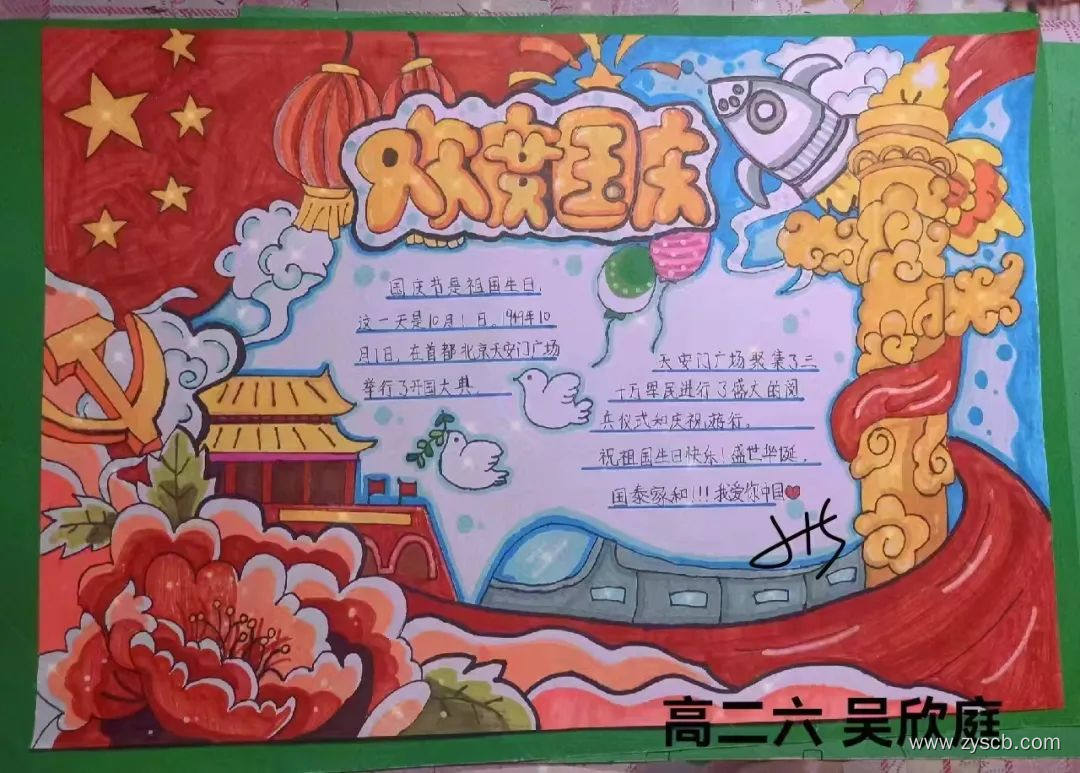 欢度国庆
国庆节是祖国生日,
这一天是10月1日。1949年10
月1日,在首都北京天安门广场
举行了开国大典。
天安门广场聚集了三
十万军民进行了盛大的阅
兵仪式和庆祝游行。
祝祖国生日快乐!盛世华诞,
国泰家和!!!我爱你中国
高二六 吴欣庭
www.zyscb.com